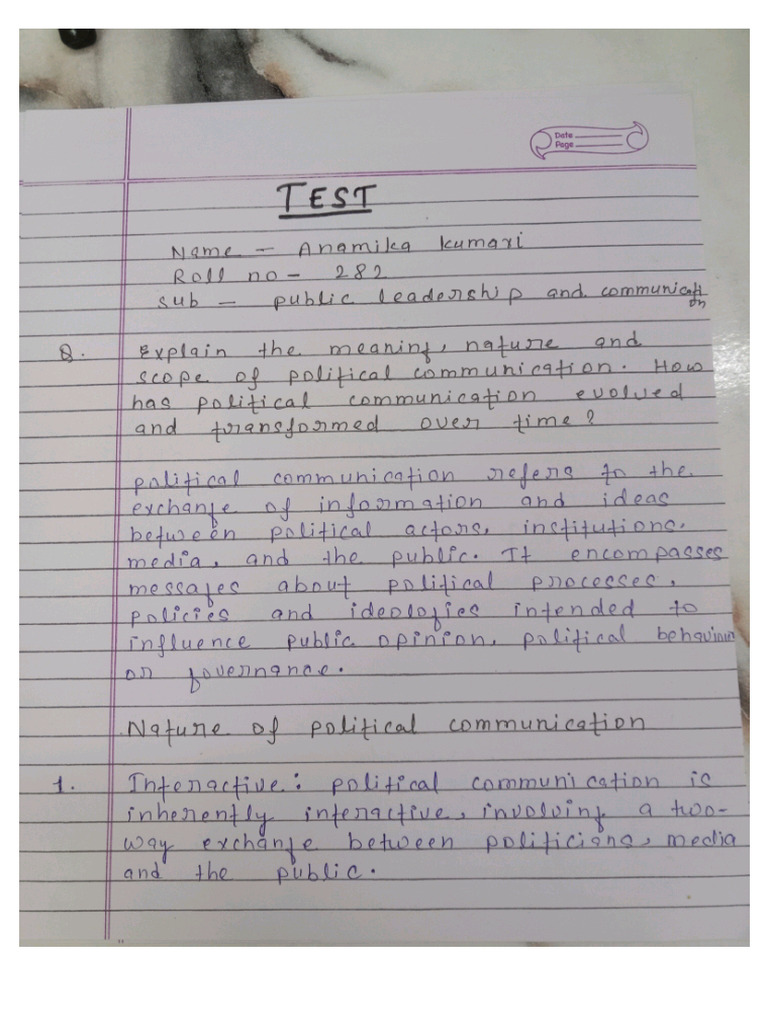 Date
Page
TEST
Name - Anamika kumari
Roll no - 282
Sub - public leadership and communication
Q. Explain the meaning, nature and
scope of political communication. How
has political communication evolved
and transformed over time?
political communication refers to the
exchange of information and ideas
between political actors, institutions,
media, and the public. It encompasses
messages about political processes,
policies and ideologies intended to
influence public opinion, political behaviour
or governance.
Nature of political communication
1. Interactive: political communication is
inherently interactive, involving a two-
way exchange between politicians, media
and the public.